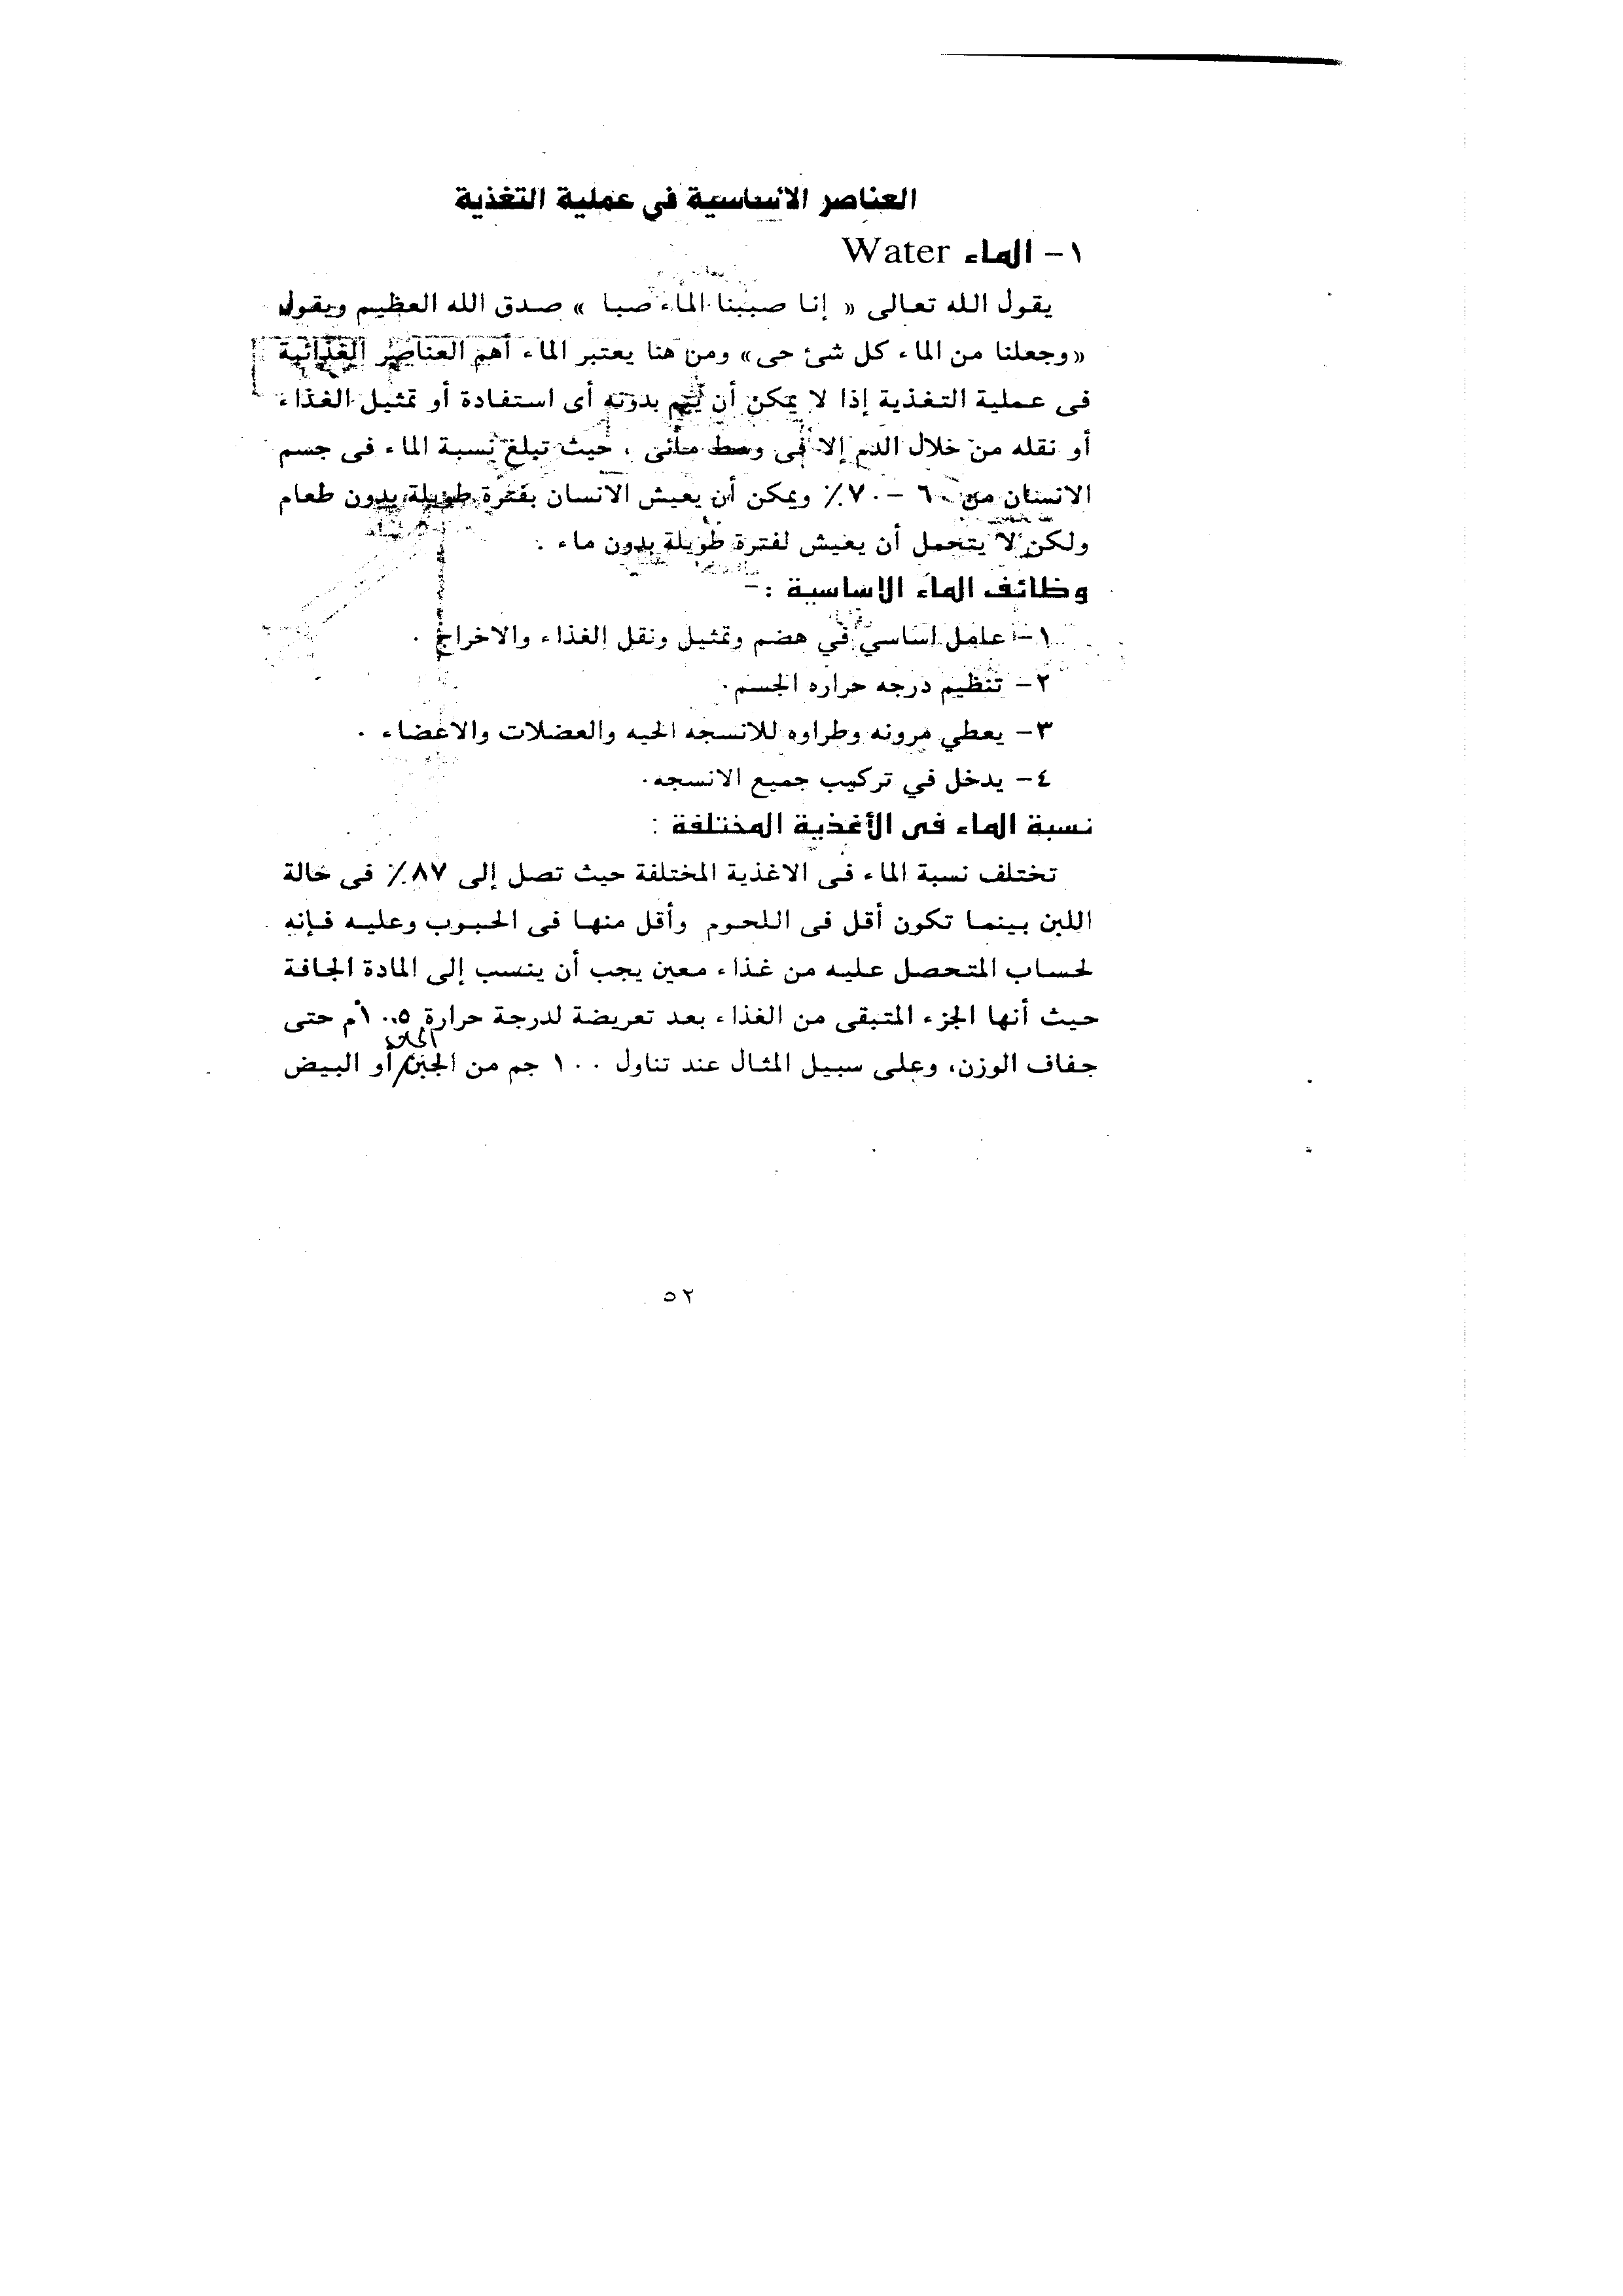 العناصر الأساسية في عملية التغذية
١- الماء Water
يقول الله تعالى « إنا صببنا الماء صبا » صدق الله العظيم ويقول
«وجعلنا من الماء كل شئ حى» ومن هنا يعتبر الماء أهم العناصر الغذائية
فى عملية التغذية إذا لا يمكن أن يتم بدونه أى استفادة أو تمثيل الغذاء
أو نقله من خلال الدم إلا فى وسط مائى ، حيث تبلغ نسبة الماء فى جسم
الانسان من ٦٠ - ٧٠٪ ويمكن أن يعيش الانسان بفترة طويلة بدون طعام
ولكن لا يتحمل أن يعيش لفترة طويلة بدون ماء .
وظائف الماء الاساسية :-
١- عامل اساسي في هضم وتمثيل ونقل الغذاء والاخراج .
٢- تنظيم درجه حراره الجسم.
٣- يعطي مرونه وطراوه للانسجه الحيه والعضلات والاعضاء .
٤- يدخل في تركيب جميع الانسجه.
نسبة الماء فى الأغذية المختلفة :
تختلف نسبة الماء فى الاغذية المختلفة حيث تصل إلى ٨٧٪ فى حالة
اللبن بينما تكون أقل فى اللحوم وأقل منها فى الحبوب وعليه فإنه
لحساب المتحصل عليه من غذاء معين يجب أن ينسب إلى المادة الجافة
حيث أنها الجزء المتبقى من الغذاء بعد تعريضة لدرجة حرارة ١٠٥ْم حتى
جفاف الوزن، وعلى سبيل المثال عند تناول ١٠٠ جم من الجبن أو البيض
٥٢